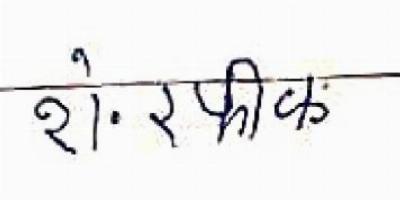 शे. रफीक